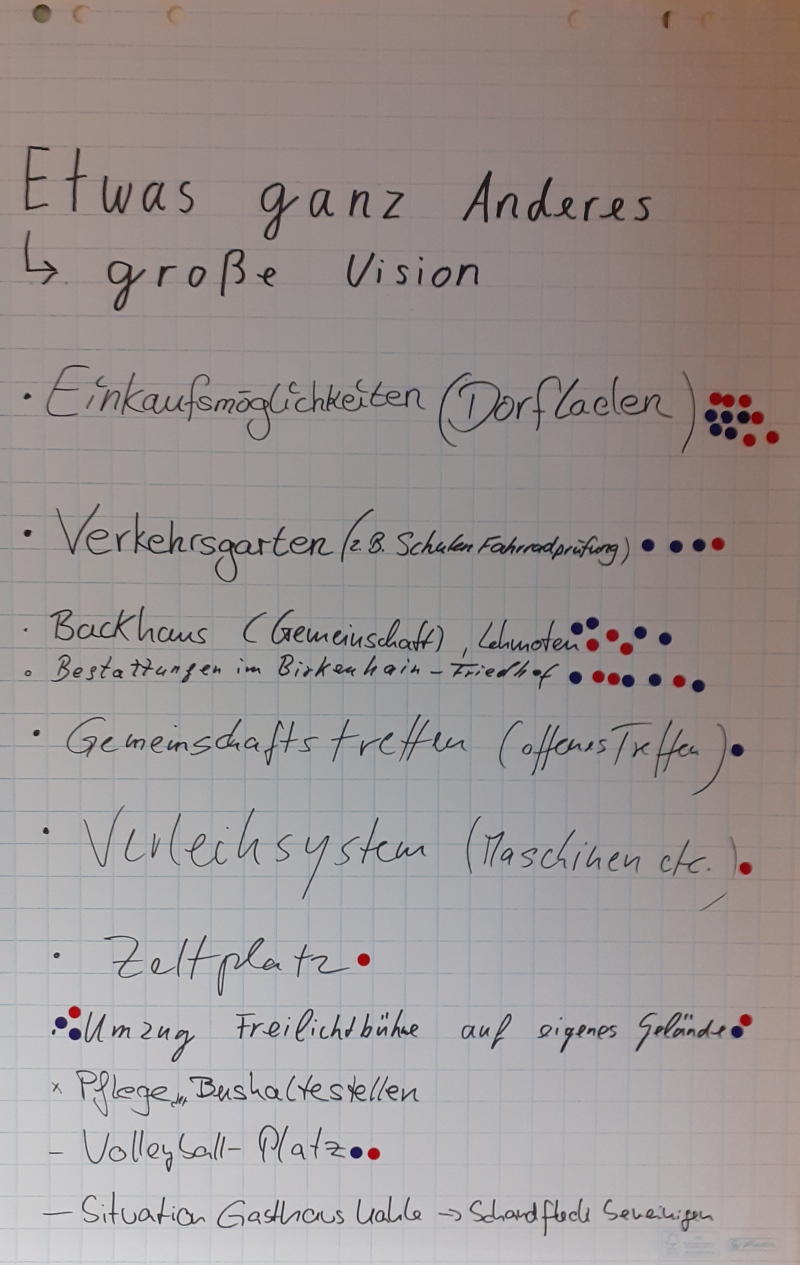 Etwas ganz Anderes
↳ große Vision
· Einkaufsmöglichkeiten (Dorfladen)
· Verkehrsgarten (z.B. Schulen Fahrradprüfung)
· Backhaus (Gemeinschaft), Lehmofen
° Bestattungen im Birkenhain-Friedhof
· Gemeinschaftstreffen (offenes Treffen)
· Verleihsystem (Maschinen etc.)
· Zeltplatz
Umzug Freilichtbühne auf eigenes Gelände
x Pflege Bushaltestellen
- Volleyball-Platz
- Situation Gasthaus → Schandfleck